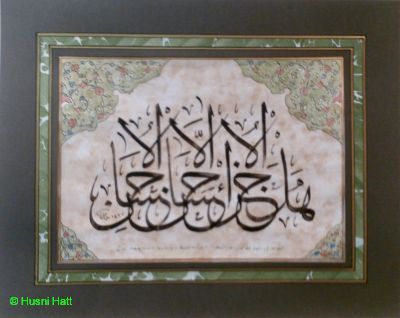 هل جزاء الإحسان إلا الإحسان
© Husni Hatt